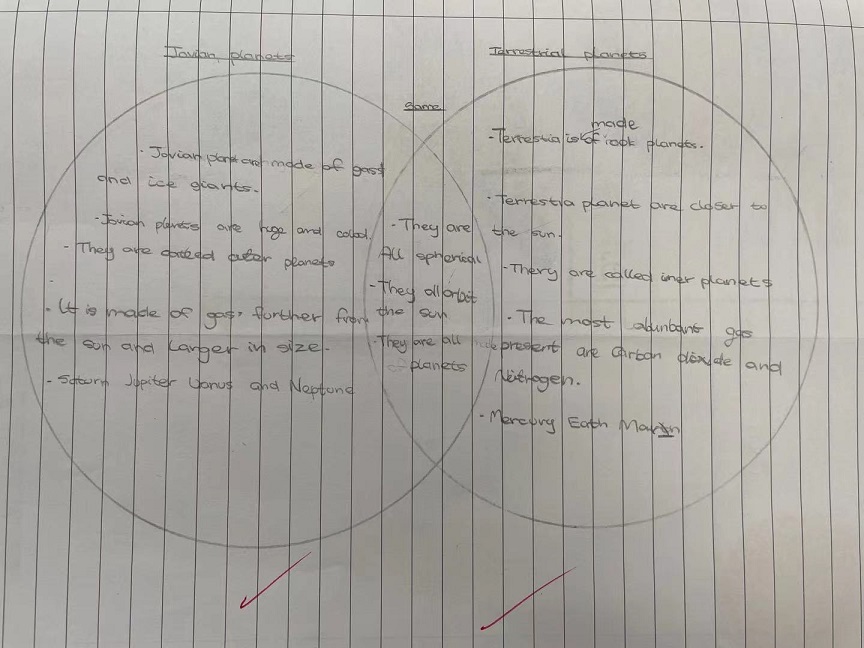 Jovian planets
· Jovian are made of gast
and ice giants.
- Jovian plants are huge and
- They are outer planets
· It is made of gas, further from
the sun and Larger in size.
- Saturn Jupiter Uranus and Neptune
Same
- They are
All spherical
- They all orbit
the sun
· They are all
planets
Terrestrial planets
made
- Terrestia is of rock planets.
· Terrestia planet are closer to
the sun.
- They are called iner planets
· The most abunbant gas
present are Carbon dioxide and
Nitrogen.
- Mercury Eath